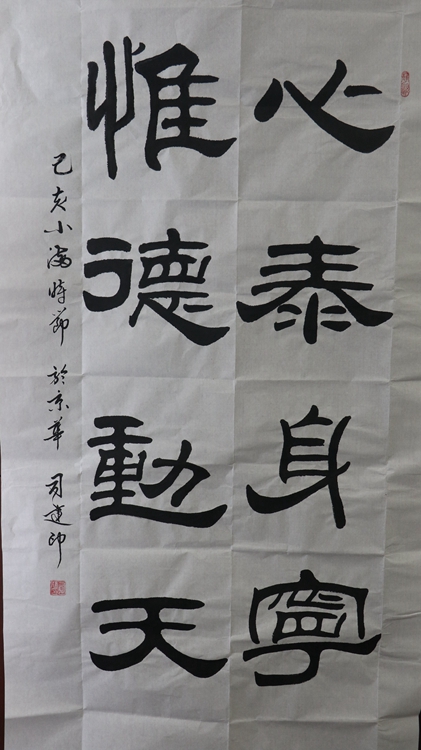 心泰身寧
惟德動天
己亥小滿時節 於京華 司建印